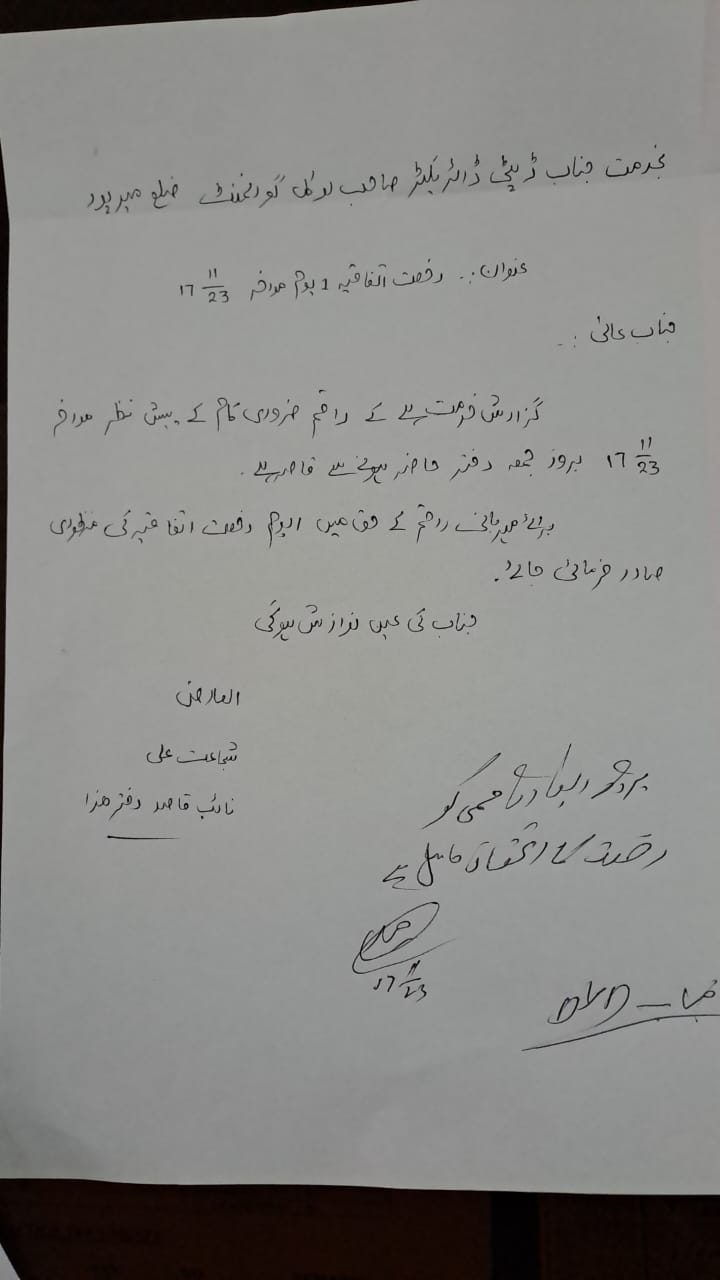 بخدمت جناب ڈپٹی ڈائریکٹر صاحب لوکل گورنمنٹ ضلع میرپور
عنوان:۔ رخصت اتفاقیہ 1 یوم مورخہ 17 11/23
جناب عالی :۔
گزارش خدمت ہے کے راقم ضروری کام کے پیش نظر مورخہ
17 11/23 بروز جمعہ دفتر حاضر ہونے سے قاصر ہے۔
برائے مہربانی راقم کے حق میں 1یوم رخصت اتفاقیہ کی منظوری
صادر فرمائی جائے۔
جناب کی عین نوازش ہوگی
العارض
شجاعت علی
نائب قاصد دفتر ھذا
بروئے ریکارڈ کو
رخصت کا استحقاق حاصل ہے
17 11/23
جناب DD